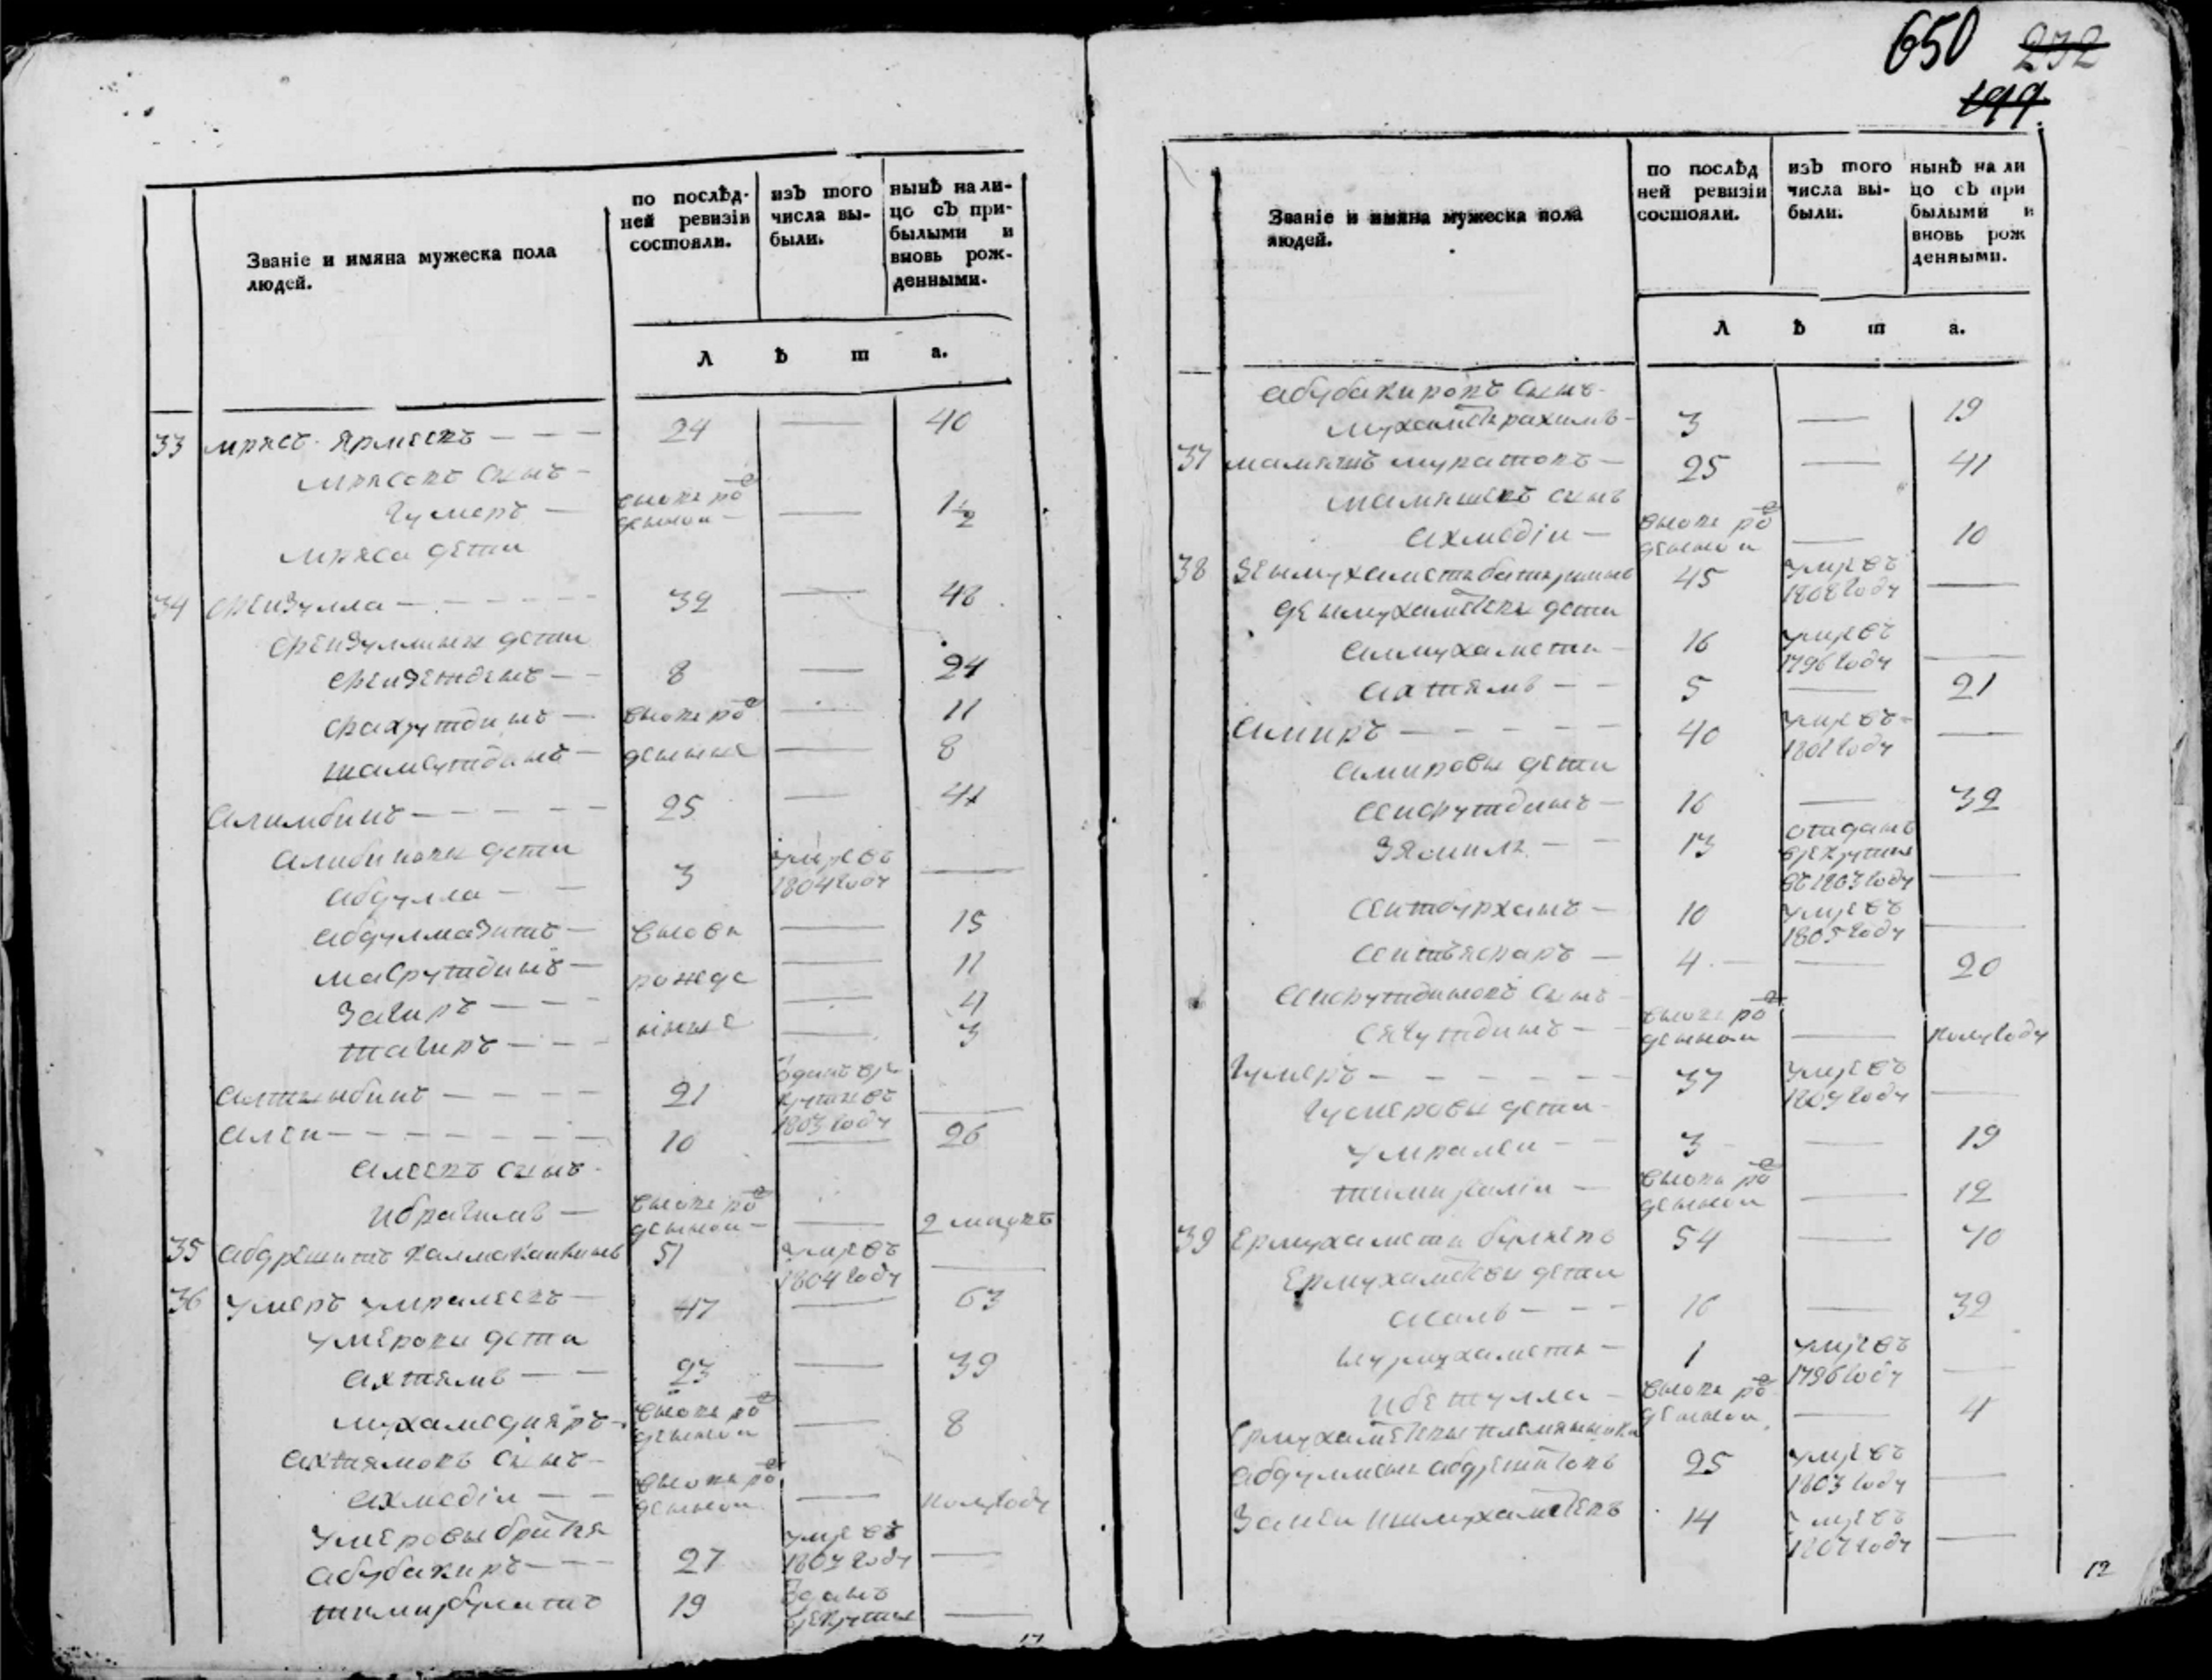 650 232
199.
Званіе и имяна мужеска пола
людей.
по послѣд-
ней ревизіи
состояли.
изъ того
числа вы-
были.
нынѣ на ли-
цо съ при-
былыми и
вновь рож-
денными.
Л ѣ т а.
33 мрясъ Ярмеевъ — 24 — 40
мрясовъ сынъ
гумеръ — вновь ро
жденной — 1 1/2
мряса дети
34 фейзулла — 32 — 48
фейзуллины дети
фейзетдинъ — 8 — 24
фахрутдинъ — вновь ро — 11
шамсутдинъ — жденные — 8
алимбикъ — 25 — 41
дети
абдулла — 3 умре въ
1804 году —
абдулмазитъ — вновь — 15
насрутдинъ — рожде — 11
Загиръ — 4
тагиръ — нные — 3
21
1803 году —
алей — 10 — 26
алеевъ сынъ
ибрагимъ — вновь ро
жденной — 2 
35 абдрешитъ 51 умре въ
1804 году —
36 умеръ умралеевъ — 47 — 63
умеровы дети
ахтямъ — 23 — 39
мухамедияръ — вновь ро
жденной — 8
ахтямовъ сынъ
ахмедій — вновь ро
жденной — полугоду
умеровы братья
абубакиръ — 27 умре въ
1807 году —
тимирбулатъ 19 зданъ
в рекруты —
Званіе и имяна мужеска пола
людей.
по послѣд
ней ревизіи
состояли.
изъ того
числа вы-
были.
нынѣ на ли
цо съ при
былыми и
вновь рож
денными.
Л ѣ т а.
абубакировъ сынъ
мухаметрахимъ — 3 — 19
37 мамяшъ муратовъ — 25 — 41
мамяшевъ сынъ
ахмедій — вновь ро
жденной — 10
38 45 умре въ
1808 году —
денмухаметевы дети
16 умре въ
1796 году —
ахтямъ — 5 — 21
амиръ — 40 умре въ
году —
амировы дети
сейфутдинъ — 16 — 32
13 отданъ
в рекруты
въ 1807 году —
сейтбурханъ — 10 умре въ
1805 году —
4 — 20
сейфутдиновъ сынъ
вновь ро
жденной — полугоду
гумеръ — 37 умре въ
1807 году —
гумеровы дети
умралей — 3 — 19
тимиргалій — вновь ро
жденной — 12
39 Ермухаметъ 54 — 70
Ермухаметевы дети
16 — 32
нурмухаметъ — 1 умре въ
1796 году —
ибетулла — вновь ро
жденной — 4
Ермухаметевы племянники
абдрешитовъ 25 умре въ
1803 году —
14 умре въ
году —
12